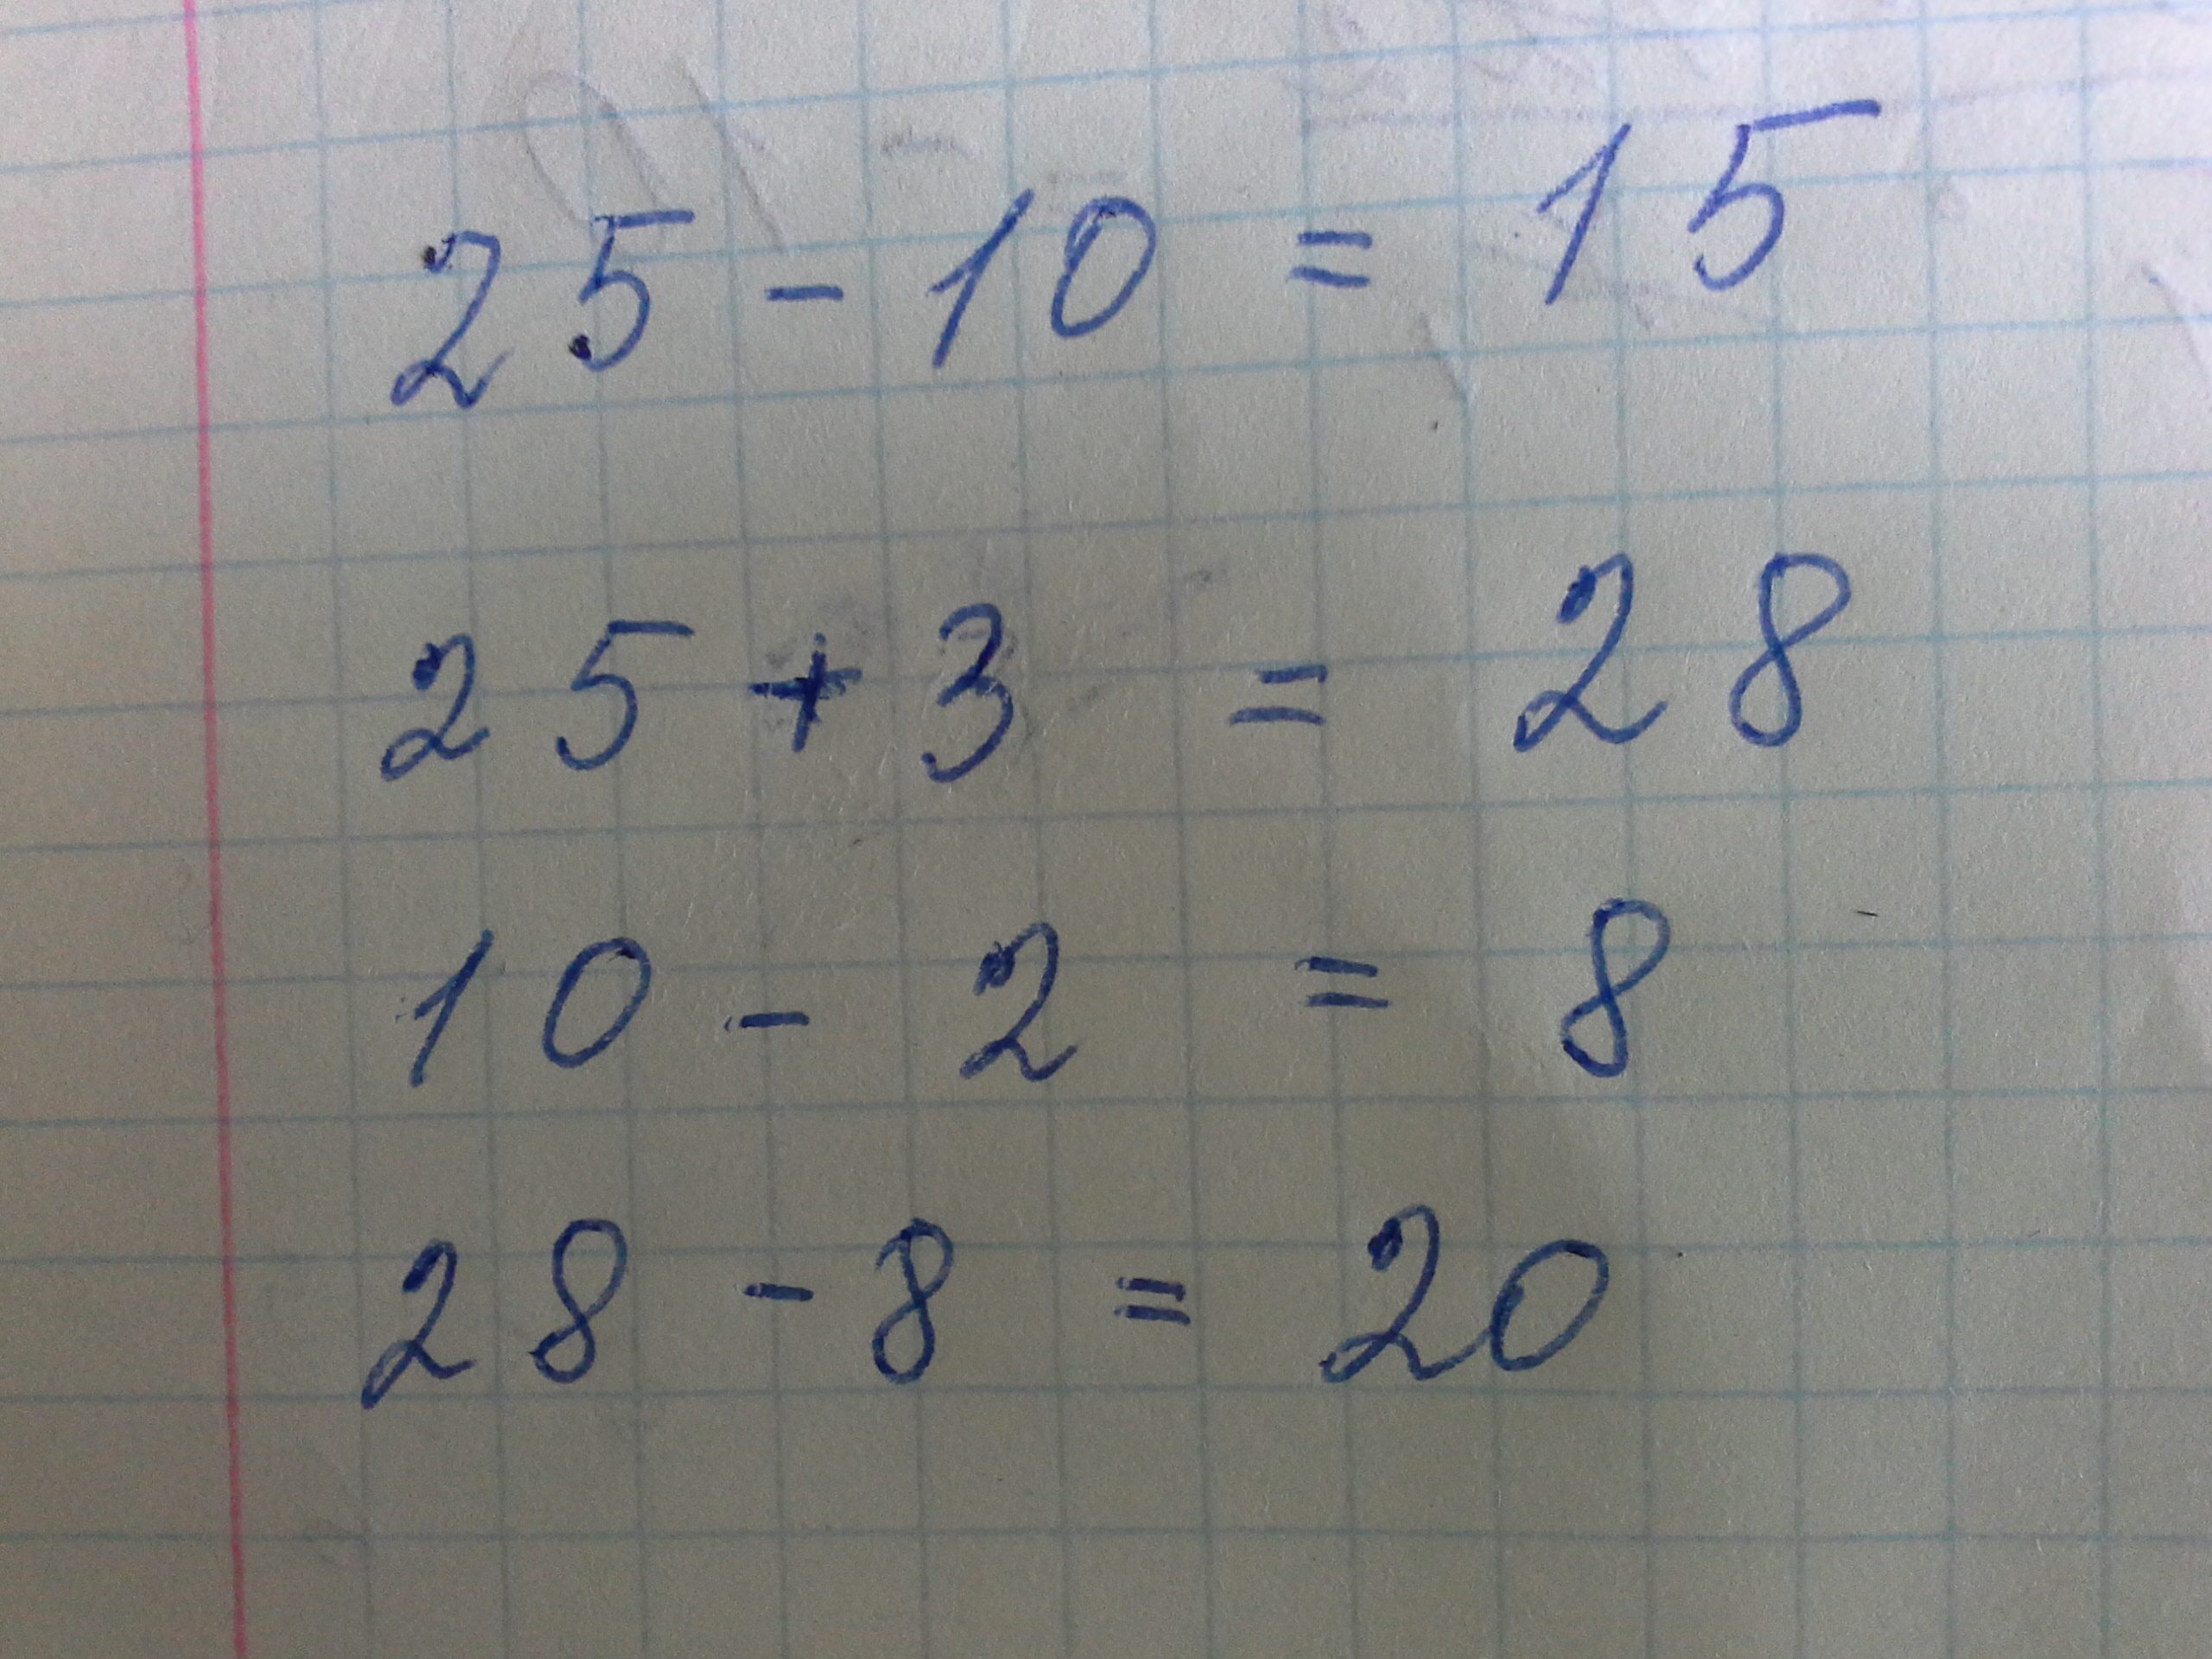 25 - 10 = 15
25 + 3 = 28
10 - 2 = 8
28 - 8 = 20